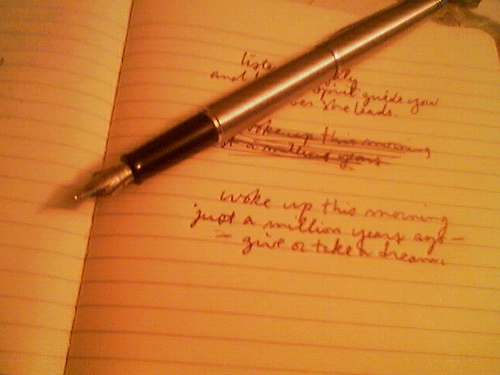 and spirit guide you
she leads.
woke up this morning
a million years
woke up this morning
just a million years ago—
— give or take a dream.